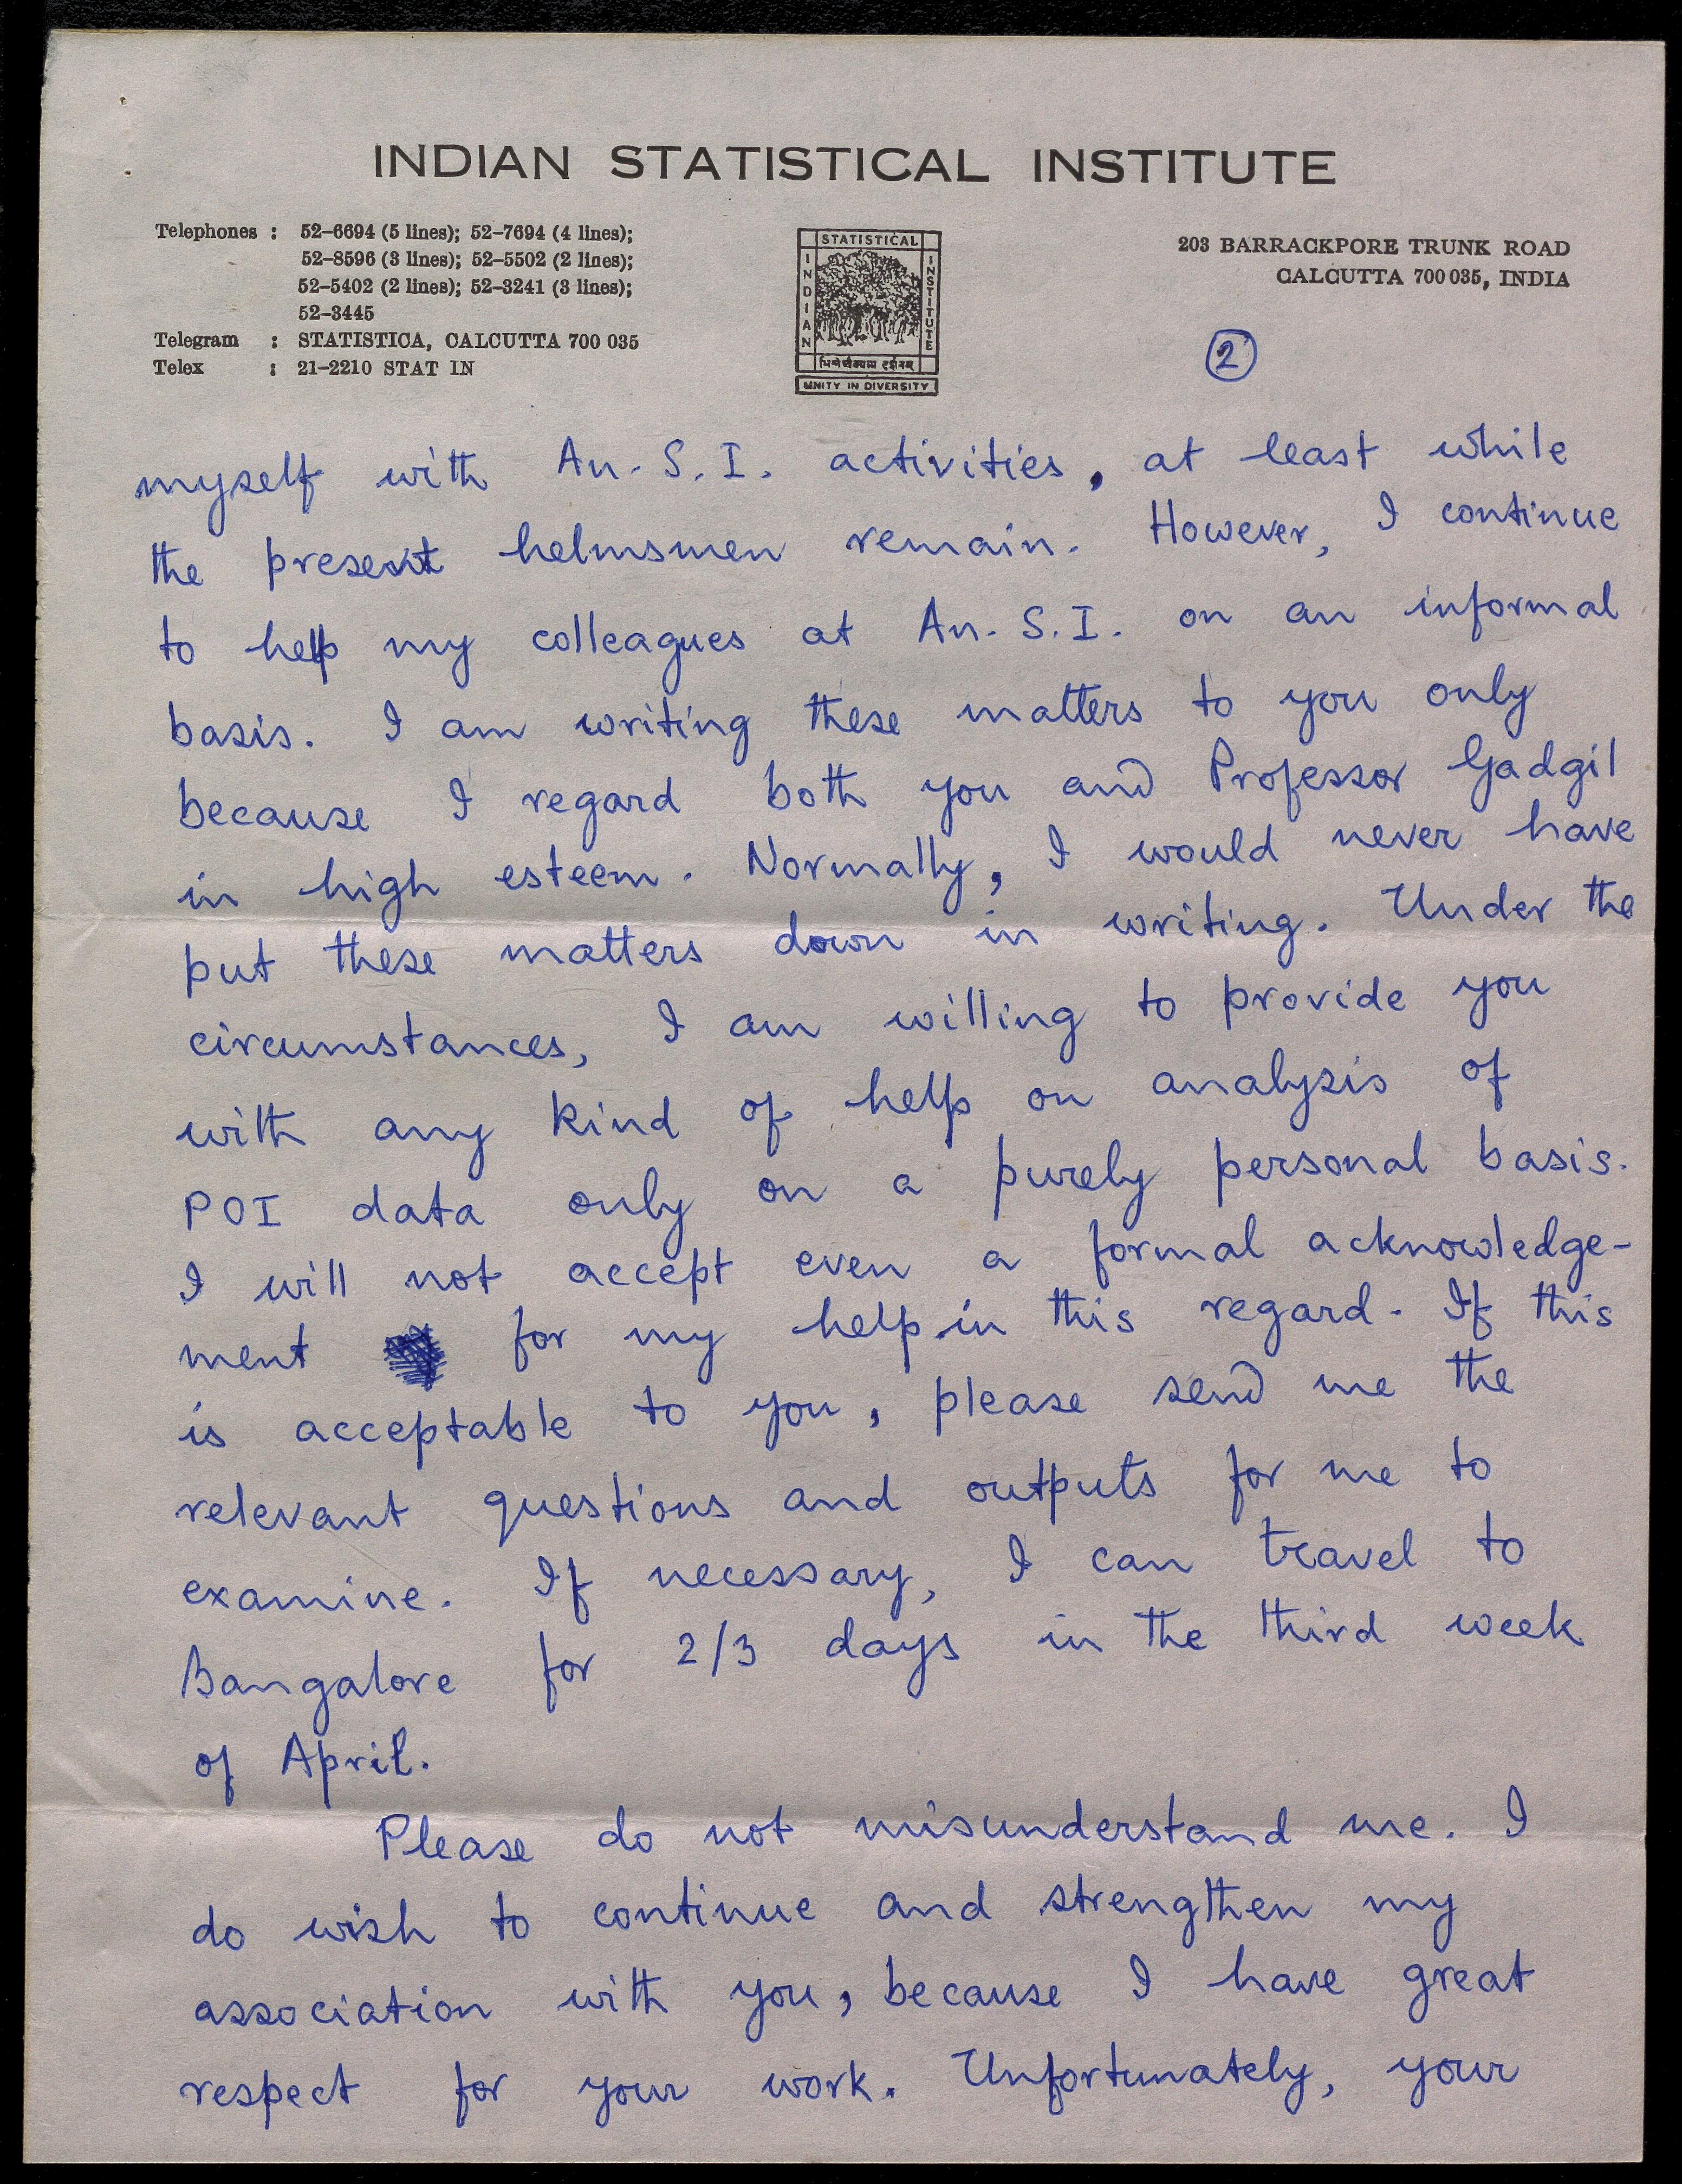 INDIAN STATISTICAL INSTITUTE
Telephones : 52-6694 (5 lines); 52-7694 (4 lines);
52-8596 (3 lines); 52-5502 (2 lines);
52-5402 (2 lines); 52-3241 (3 lines);
52-3445
Telegram : STATISTICA, CALCUTTA 700 035
Telex : 21-2210 STAT IN
STATISTICAL
INDIAN
INSTITUTE
भिन्नेष्वैक्यस्य दर्शनम्
UNITY IN DIVERSITY
203 BARRACKPORE TRUNK ROAD
CALCUTTA 700 035, INDIA
2
myself with An. S. I. activities, at least while
the present helmsmen remain. However, I continue
to help my colleagues at An. S. I. on an informal
basis. I am writing these matters to you only
because I regard both you and Professor Gadgil
in high esteem. Normally, I would never have
put these matters down in writing. Under the
circumstances, I am willing to provide you
with any kind of help on analysis of
POI data only on a purely personal basis.
I will not accept even a formal acknowledge-
ment for my help in this regard. If this
is acceptable to you, please send me the
relevant questions and outputs for me to
examine. If necessary, I can travel to
Bangalore for 2/3 days in the third week
of April.
Please do not misunderstand me. I
do wish to continue and strengthen my
association with you, because I have great
respect for your work. Unfortunately, your